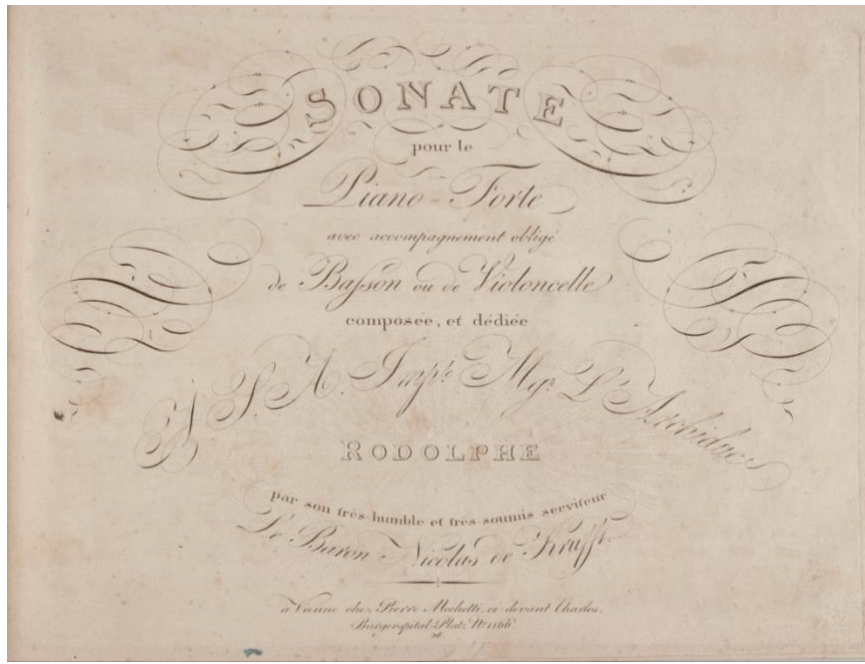 SONATE
pour le
Piano-Forte
avec accompagnement obligé
de Basson ou de Violoncelle
composée, et dédiée
À S. A. Imp.le Mgr. L'Archiduc
RODOLPHE
par son très-humble et très-soumis serviteur
Le Baron Nicolas de Krufft.
à Vienne chez Pierre Mechetti, ci-devant Charles,
Bürgerspital-Platz, No. 1166.